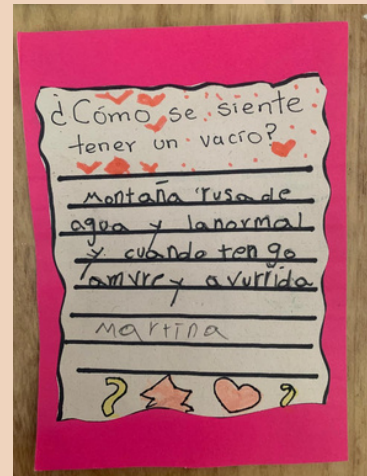 ¿Cómo se siente
tener un vacío?
Montaña rusa de
agua y lanormal
y cuando tengo
amvre y avurrida
Martina